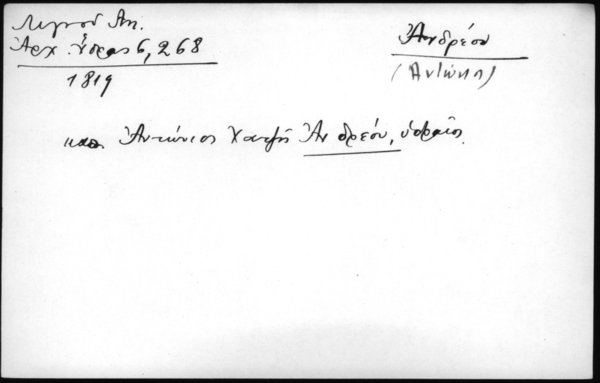 Λιγνού Αντ.
Αρχ. Ύδρας 6, 268
1819
Ἀνδρέου
(Αντώνης)
καπ. Ἀντώνιος Χατζῆ Ἀνδρέου, ὑδραῖος.